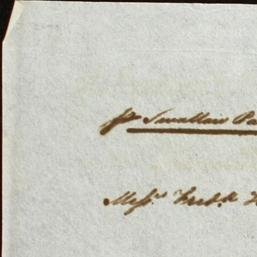 pr Swallow Pa
Messrs. Fredk. H